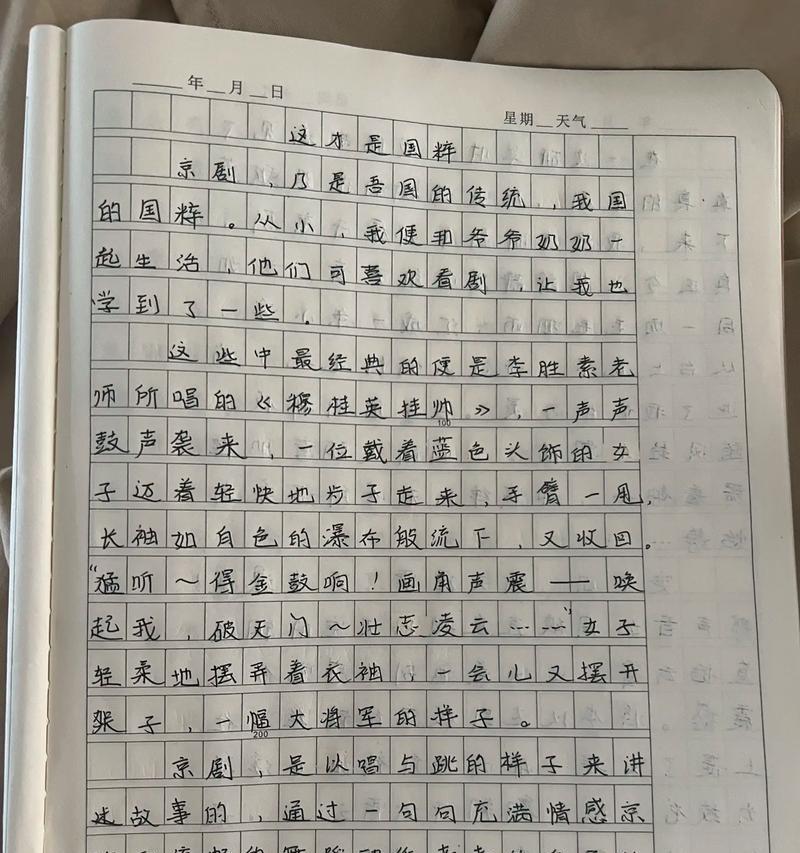 年 月 日
星期 天气
这才是国粹
京剧，乃是吾国的传统，我国
的国粹。从小，我便和爷爷奶奶一
起生活，他们可喜欢看剧，让我也
学到了一些。
这些中最经典的便是李胜素老
师所唱的《穆桂英挂帅》，一声声
100
鼓声袭来，一位戴着蓝色头饰的女
子迈着轻快地步子走来，手臂一甩，
长袖如自色的瀑布般流下，又收回。
“猛听～得金鼓响！画角声震——唤
起我，破天门～壮志凌云……”女子
轻柔地摆弄着衣袖，一会儿又摆开
架子，一幅大将军的样子。
200
京剧，是以唱与跳的样子来讲
述故事的，通过一句句充满情感京